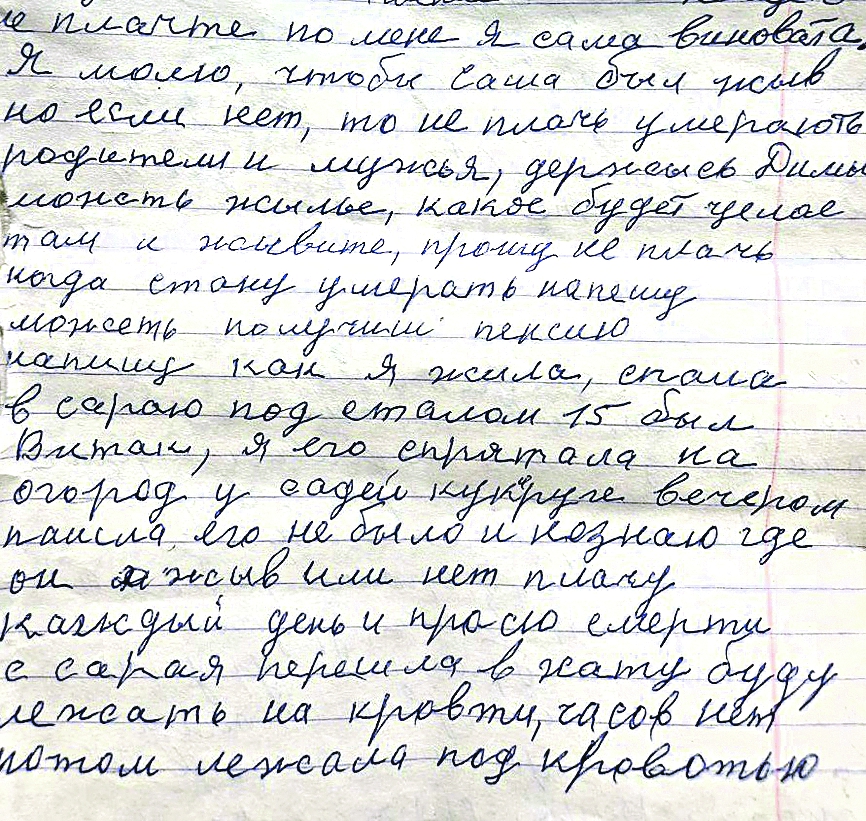 не плачте по мене я сама виновата.
Я молю, чтобы Саша был жыв
но если нет, то не плачь умерають
родители и мужья, держысь Димы
можеть жылье, какое будет целое
там и жывите, прошу не плачь
когда стану умерать напешу
можеть получиш пенсию
напишу как я жила, спала
в сараю под сталом 15 был
Виталик, я его спрятала на
огород у садей кукурузе вечером
паишла его не было и незнаю где
он жыв или нет плачу
каждый день и просю смерти
с сарая перешла в хату буду
лежать на кровти, часов нет
потом лежала под кроватью